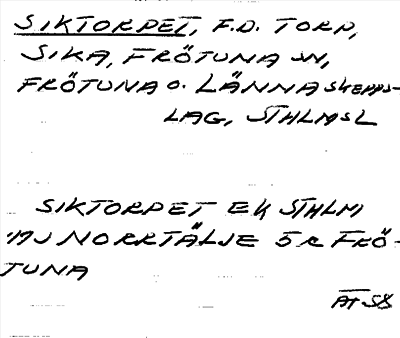 SIKTORPET, F.D. TORP,
SIKA, FRÖTUNA SN,
FRÖTUNA O. LÄNNA SKEPPS-
LAG, STHLMS L
SIKTORPET EK STHLM
11J NORRTÄLJE 5 R FRÖ-
TUNA
AT 58